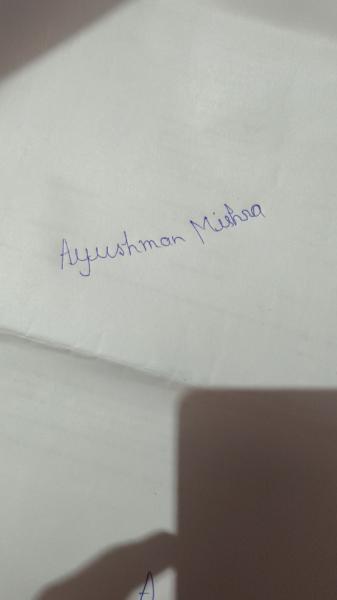 Ayushman Mishra
A